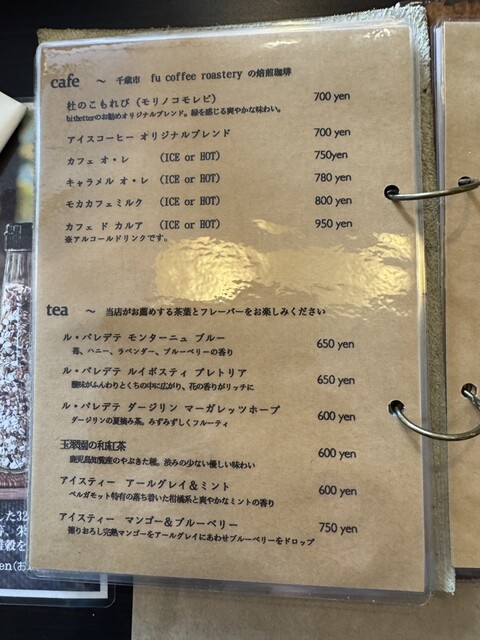 cafe ～ 千歳市 fu coffee roastery の焙煎珈琲
杜のこもれび (モリノコモレビ) 700 yen
bithetterのお勧めオリジナルブレンド。緑を感じる爽やかな味わい。
アイスコーヒー オリジナルブレンド 700 yen
カフェ オ・レ (ICE or HOT) 750yen
キャラメル オ・レ (ICE or HOT) 780 yen
モカカフェミルク (ICE or HOT) 800 yen
カフェ ド カルア (ICE or HOT) 950 yen
※アルコールドリンクです。
tea ～ 当店がお薦めする茶葉とフレーバーをお楽しみください
ル・パレデテ モンターニュ ブルー 650 yen
苺、ハニー、ラベンダー、ブルーベリーの香り
ル・パレデテ ルイボスティ プレトリア 650 yen
酸味がふんわりとくちの中に広がり、花の香りがリッチに
ル・パレデテ ダージリン マーガレッツホープ 600 yen
ダージリンの夏摘み茶。みずみずしくフルーティ
玉翠園の和紅茶 600 yen
鹿児島知覧産のやぶきた種。渋みの少ない優しい味わい
アイスティー アールグレイ＆ミント 600 yen
ベルガモット特有の落ち着いた柑橘系と爽やかなミントの香り
アイスティー マンゴー＆ブルーベリー 750 yen
擦りおろし完熟マンゴーをアールグレイにあわせブルーベリーをドロップ
した32